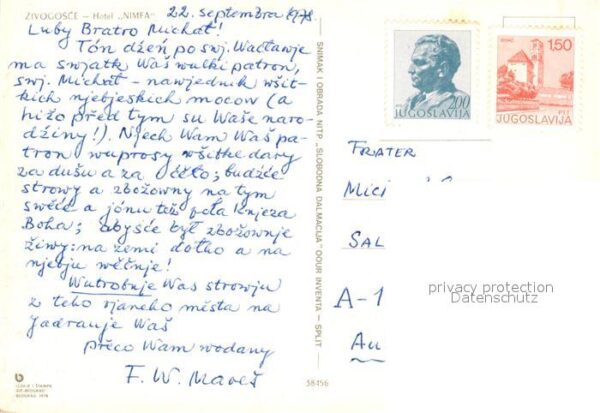 ŽIVOGOŠĆE – Hotel „NIMFA"
22. septembra 1978.
Luby Bratro Michał!
Tón dźeń po swj. Wacławje
ma swjatk Waš wulki patron,
swj. Michał – nawjednik wšit-
kich njebjeskich mocow (a
hižo před tym su Waše naro-
dźiny!). Njech Wam Waš pa-
tron wuprosy wšitke dary
za dušu a za ćěło; budźće
strowy a zbožowny na tym
swěće a jónu tež pola knjeza
Boha; abyšće był zbožownje
žiwy: na zemi dołho a na
njebju wěčnje!
Wutrobnje Was strowju
z teho rjaneho města na
Jadranje Waš
přeco Wam wodany
F. W. Mareš
SNIMAK I OBRADA NITP „SLOBODNA DALMACIJA" OOUR INVENTA – SPLIT
38456
BEOGRAD 1978
2.00
JUGOSLAVIJA
1,50
JUGOSLAVIJA
FRATER
MICI
SAL
A-1
AU
privacy protection
Datenschutz